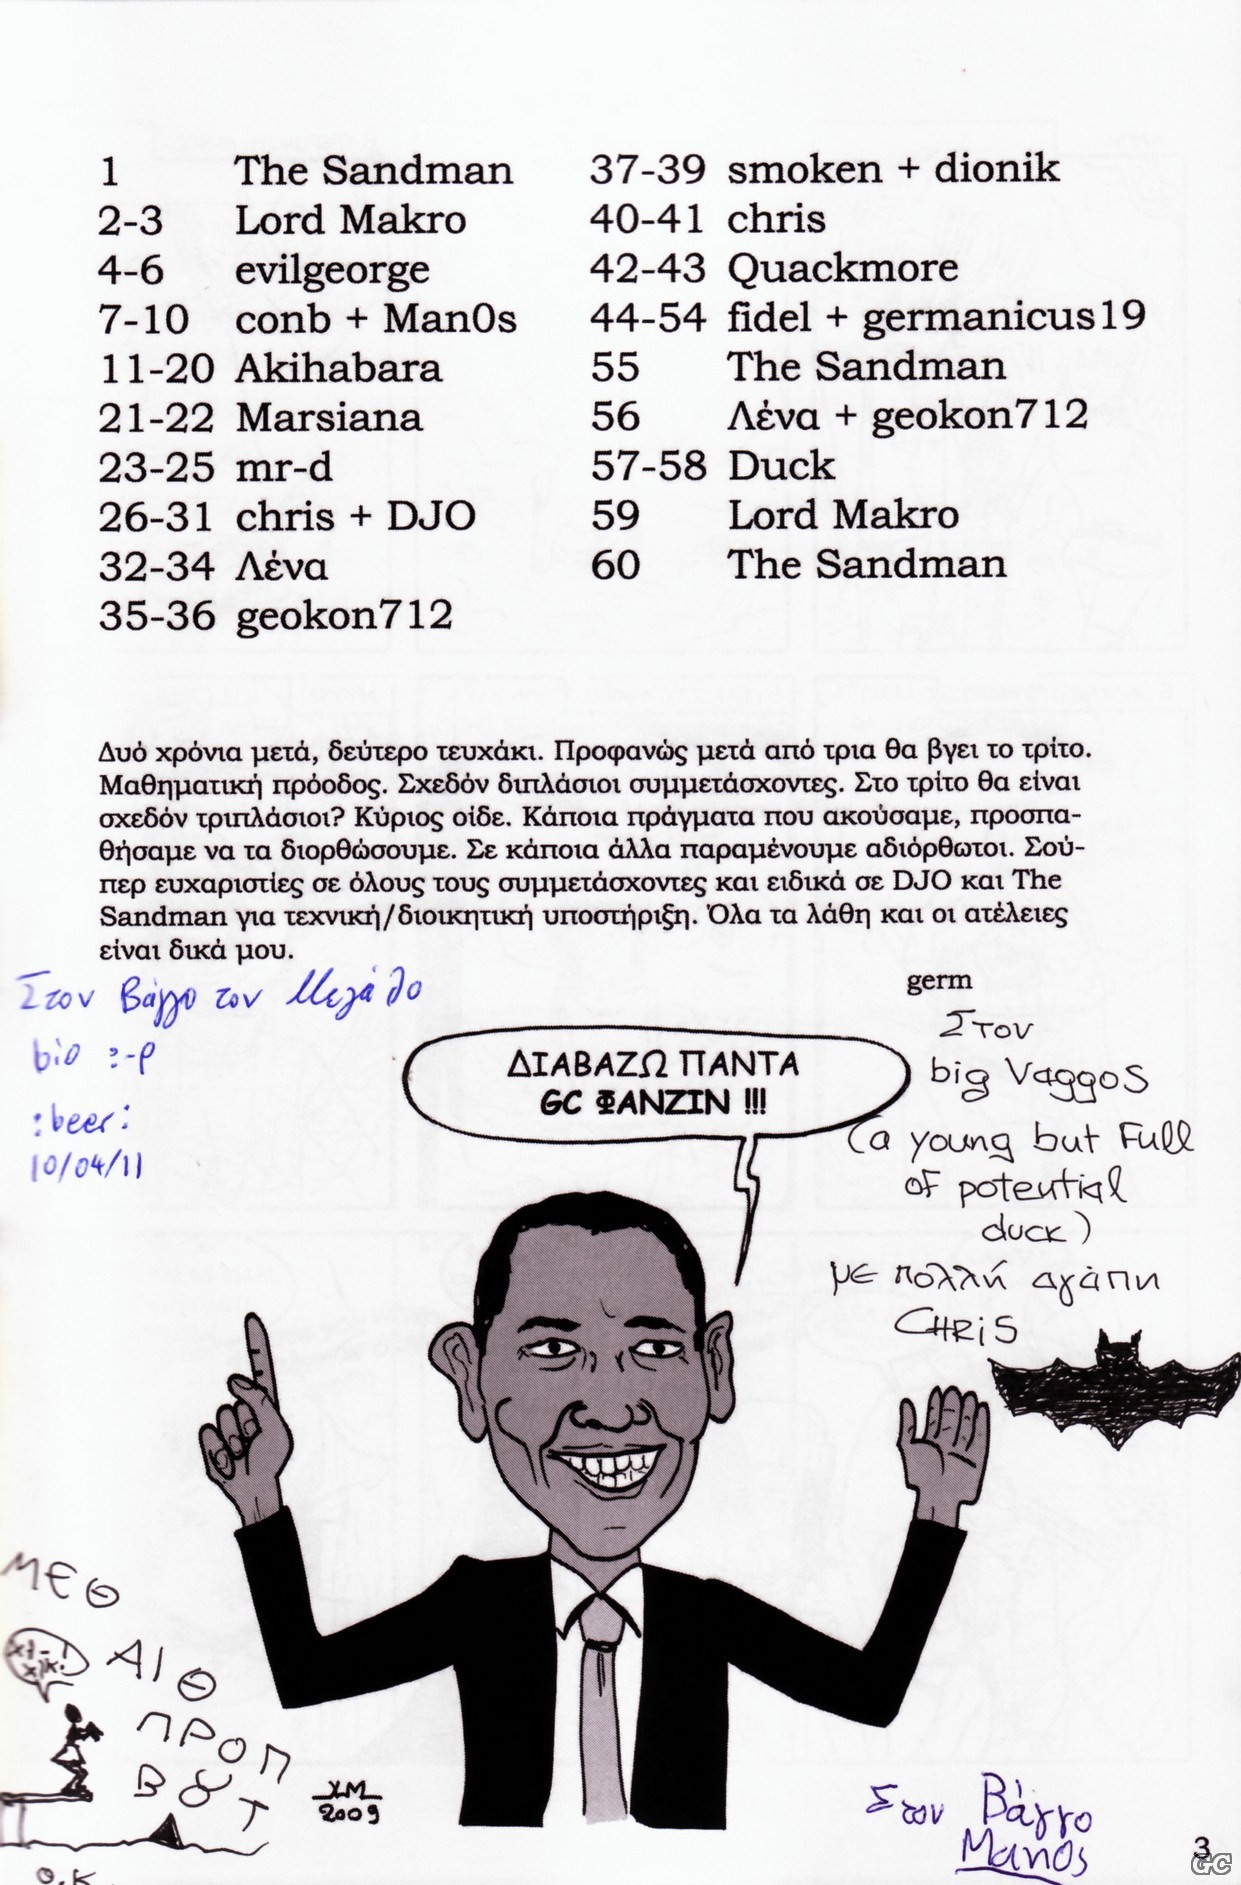 1 The Sandman
2-3 Lord Makro
4-6 evilgeorge
7-10 conb + Man0s
11-20 Akihabara
21-22 Marsiana
23-25 mr-d
26-31 chris + DJO
32-34 Λένα
35-36 geokon712
37-39 smoken + dionik
40-41 chris
42-43 Quackmore
44-54 fidel + germanicus19
55 The Sandman
56 Λένα + geokon712
57-58 Duck
59 Lord Makro
60 The Sandman
Δυό χρόνια μετά, δεύτερο τευχάκι. Προφανώς μετά από τρια θα βγει το τρίτο.
Μαθηματική πρόοδος. Σχεδόν διπλάσιοι συμμετάσχοντες. Στο τρίτο θα είναι
σχεδόν τριπλάσιοι? Κύριος οίδε. Κάποια πράγματα που ακούσαμε, προσπα-
θήσαμε να τα διορθώσουμε. Σε κάποια άλλα παραμένουμε αδιόρθωτοι. Σού-
περ ευχαριστίες σε όλους τους συμμετάσχοντες και ειδικά σε DJO και The
Sandman για τεχνική/διοικητική υποστήριξη. Όλα τα λάθη και οι ατέλειες
είναι δικά μου.
germ
Στον Βάγγο τον Μεγάλο
bio :-p
:beer:
10/04/11
ΔΙΑΒΑΖΩ ΠΑΝΤΑ
GC ΦΑΝΖΙΝ !!!
Στον
big Vaggos
(a young but Full
of potential
duck)
με πολλή αγάπη
CHRiS
ΜΕΘ
ΑΙΘ
ΠΡΟΠ
ΒΟΥΤ
ΧΜ
2009
O.K.
Στον Βάγγο
Man0s
3
GC